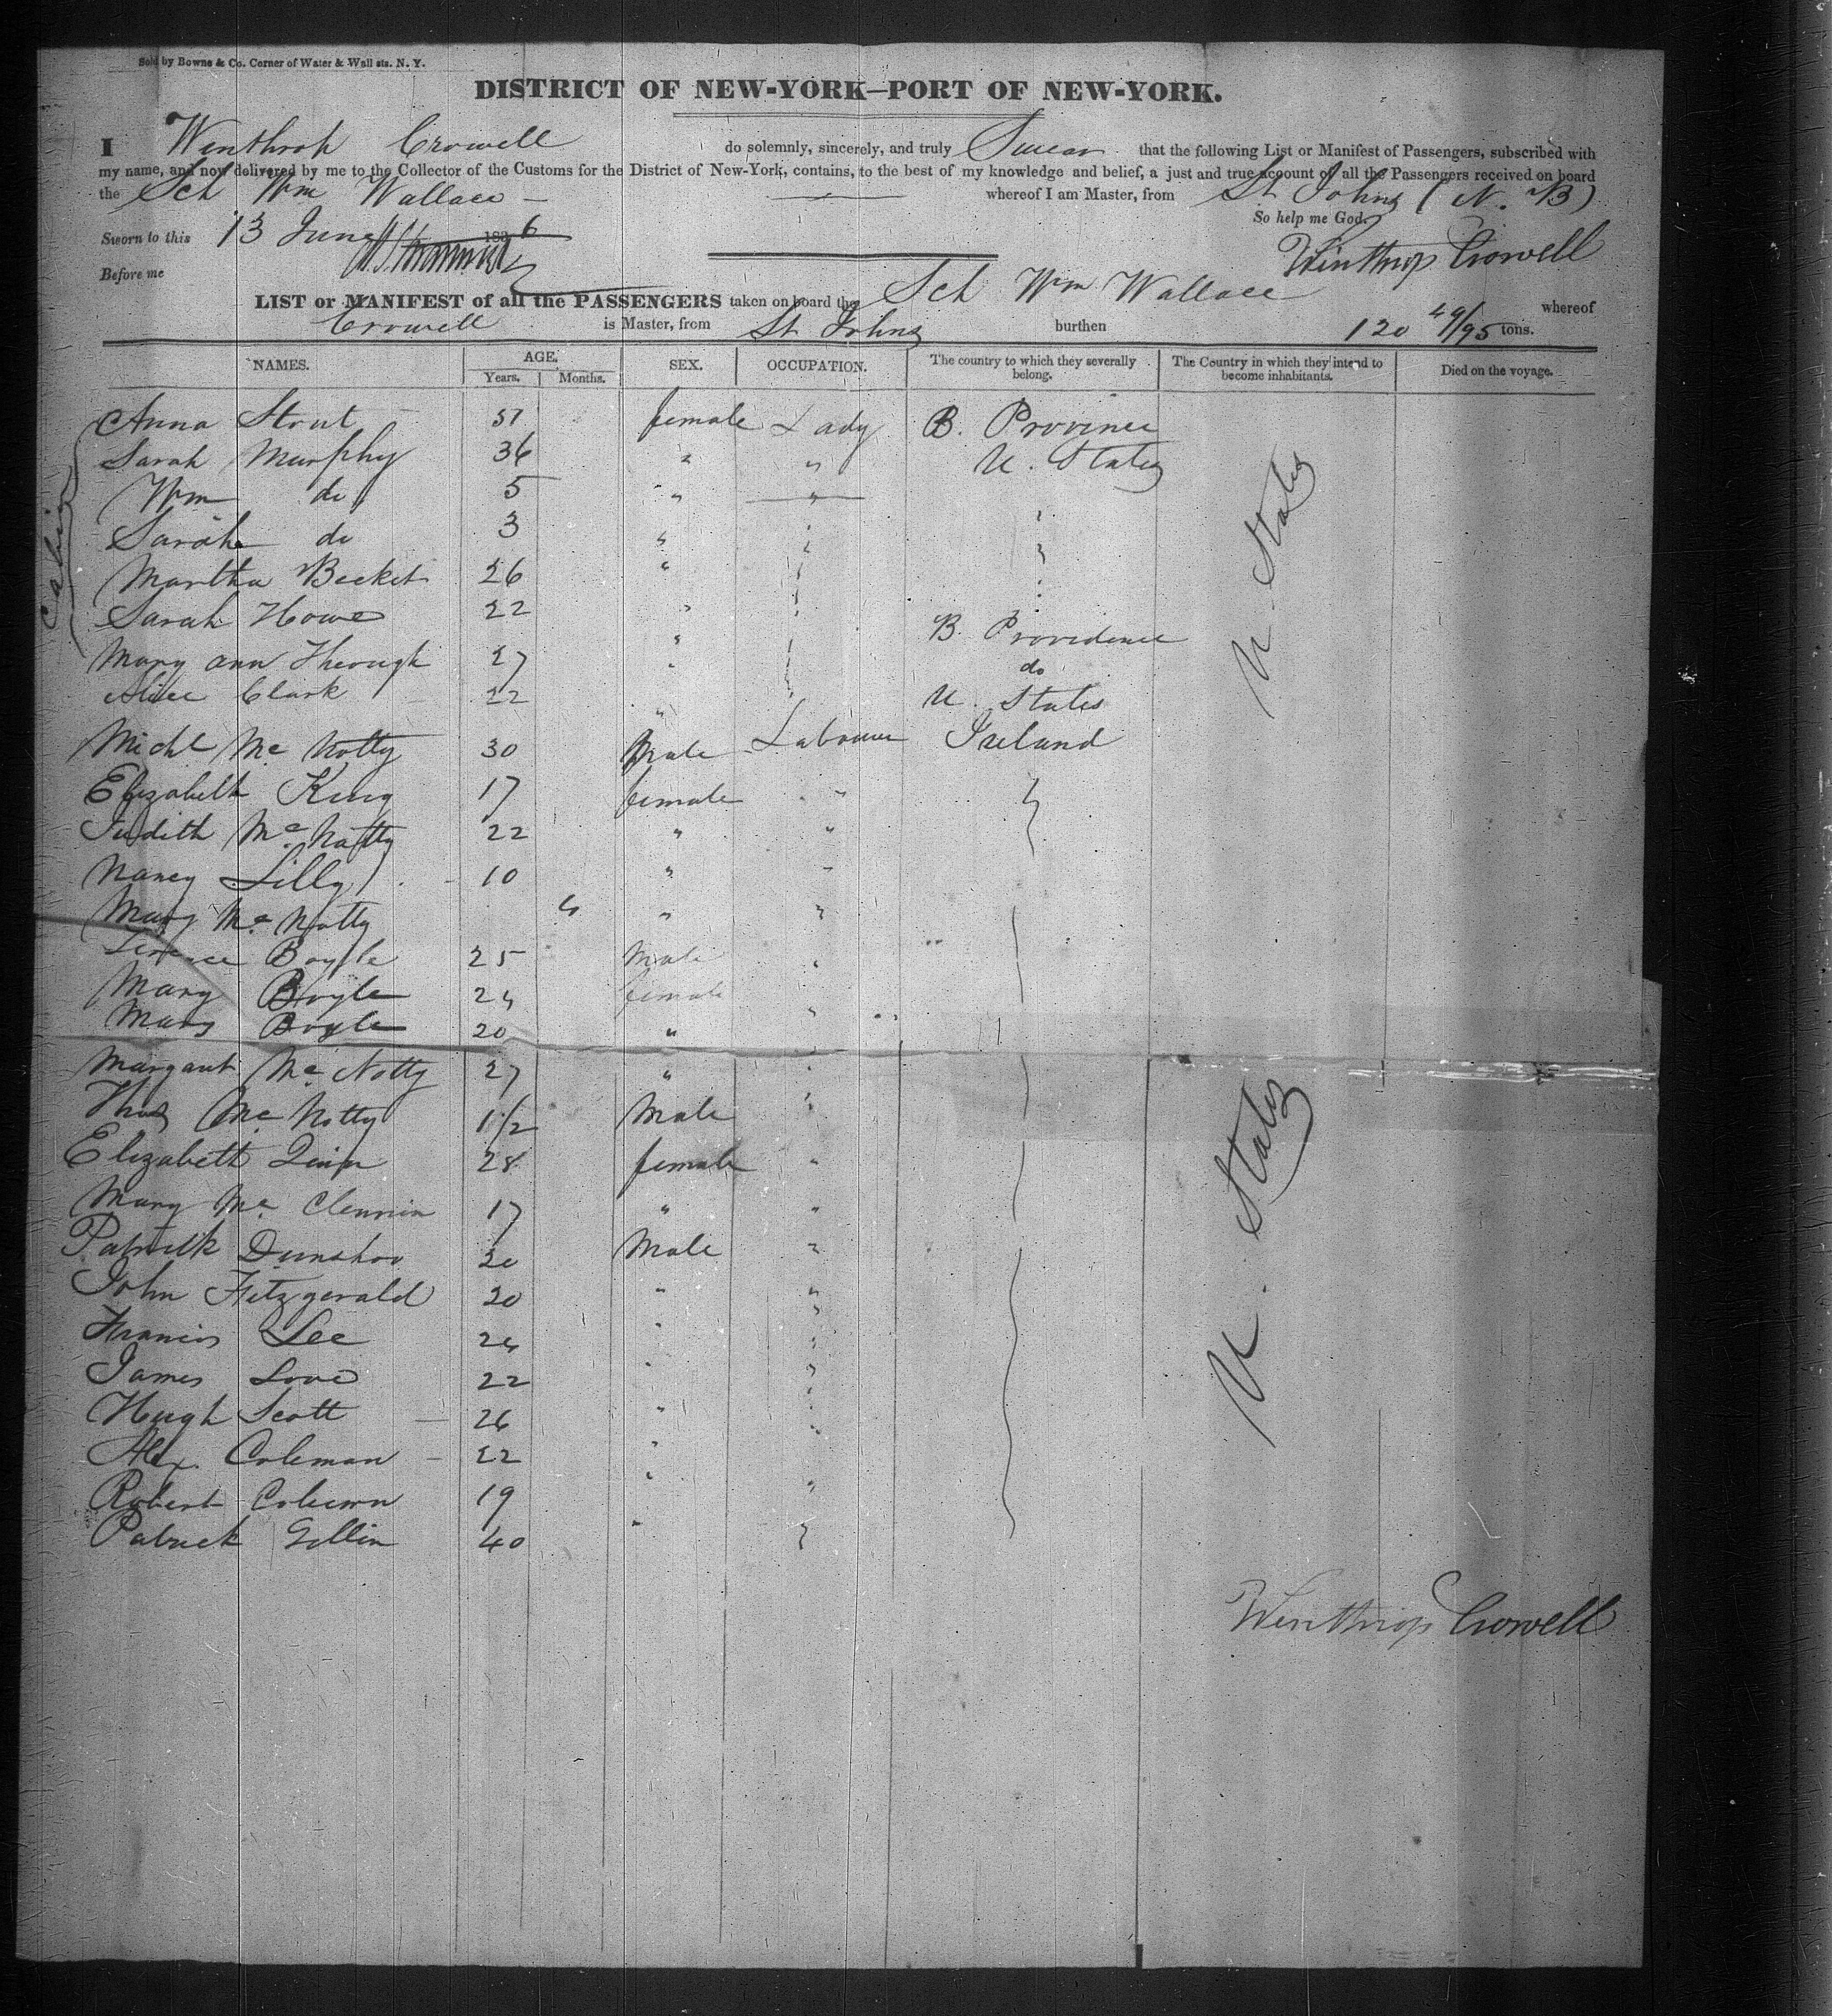 Sold by Bowne & Co. Corner of Water & Wall sts. N. Y.
DISTRICT OF NEW-YORK—PORT OF NEW-YORK.
I Winthrop Crowell do solemnly, sincerely, and truly Swear that the following List or Manifest of Passengers, subscribed with
my name, and now delivered by me to the Collector of the Customs for the District of New-York, contains, to the best of my knowledge and belief, a just and true account of all the Passengers received on board
the Sch Wm Wallace whereof I am Master, from St Johns (N. B)
So help me God.
Sworn to this 13 June 1836
Winthrop Crowell
Before me
LIST or MANIFEST of all the PASSENGERS taken on board the Sch Wm Wallace whereof
Crowell is Master, from St Johns burthen 120 49/95 tons.
NAMES. AGE. Years. Months. SEX. OCCUPATION. The country to which they severally belong. The Country in which they intend to become inhabitants. Died on the voyage.
Cabin
Anna Stout 51 female Lady B. Province
Sarah Murphy 36 " " U. States
Wm do 5 " "
Sarah do 3 "
Martha Becket 26 "
Sarah Howe 22 " B. Providence
Mary Ann 27 " do
Alice Clark 22 " U. States
U. States
Michl Mc Notty 30 Male Labourer Ireland
Elizabeth King 17 female "
Judith Mc Notty 22 " "
Nancy Lilly 10 " "
Mary Mc Notty 4 " "
Boyle 25 Male "
Mary Boyle 24 female
Mary Boyle 20 " "
Margaret Mc Notty 27 " "
Thos Mc Notty 1 1/2 Male "
Elizabeth Quinn 28 female "
Mary Mc 17 " "
Patrick 20 Male "
U. States
John Fitzgerald 30 " "
Francis Lee 24 " "
James Love 22 " "
Hugh Scott 26 " "
Alex. Coleman 22 "
Robert 19 " "
Patrick 40 "
Winthrop Crowell